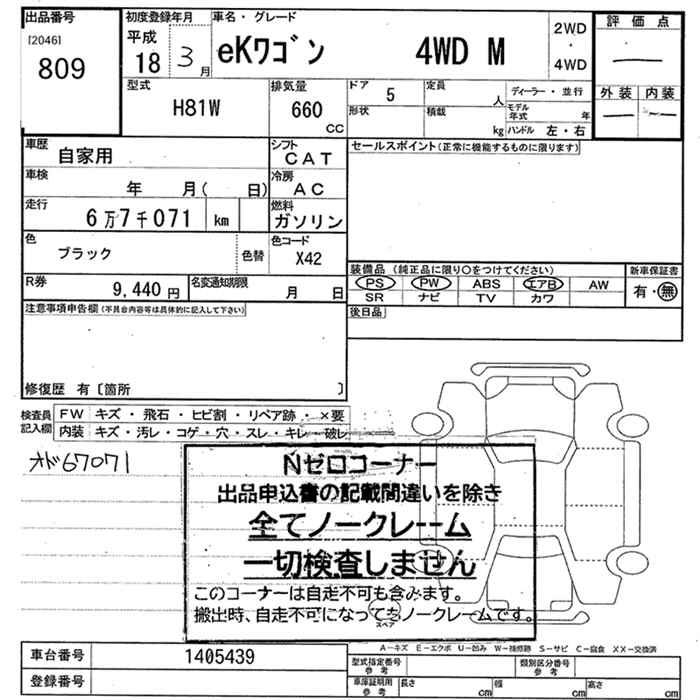 出品番号 初度登録年月 車名・グレード 評価点
[2046] 平成 2WD
809 18 3月 eKワゴン 4WD M ・
4WD ―
型式 排気量 ドア 5 定員 人 ディーラー・並行 外装 内装
H81W 660 cc 形状 積載 kg モデル年式 年 ― ―
ハンドル 左・右
車歴 自家用 シフト CAT セールスポイント(正常に機能するものに限ります)
車検 年 月( 日) 冷房 AC
走行 6万7千071 km 燃料 ガソリン
色 ブラック 色替 色コード X42
装備品 (純正品に限り○をつけてください) 新車保証書
R券 9,440円 名変通知期限 月 日 PS PW ABS エアB AW 有・無
SR ナビ TV カワ
注意事項申告欄(不具合内容等は具体的に記入して下さい) 後日品
修復歴 有〔箇所 〕
検査員記入欄 FW キズ・飛石・ヒビ割・リペア跡・×要
内装 キズ・汚レ・コゲ・穴・スレ・キレ・破レ
オド67071
Nゼロコーナー
出品申込書の記載間違いを除き
全てノークレーム
一切検査しません
このコーナーは自走不可も含みます。
搬出時、自走不可になってもノークレームです。
スペア
A―キズ E―エクボ U―凹み W―補修跡 S―サビ C―腐食 XX―交換済
車台番号 1405439 型式指定番号 参考 類別区分番号 参考
登録番号 車庫証明用 参考 長さ cm 幅 cm 高さ cm